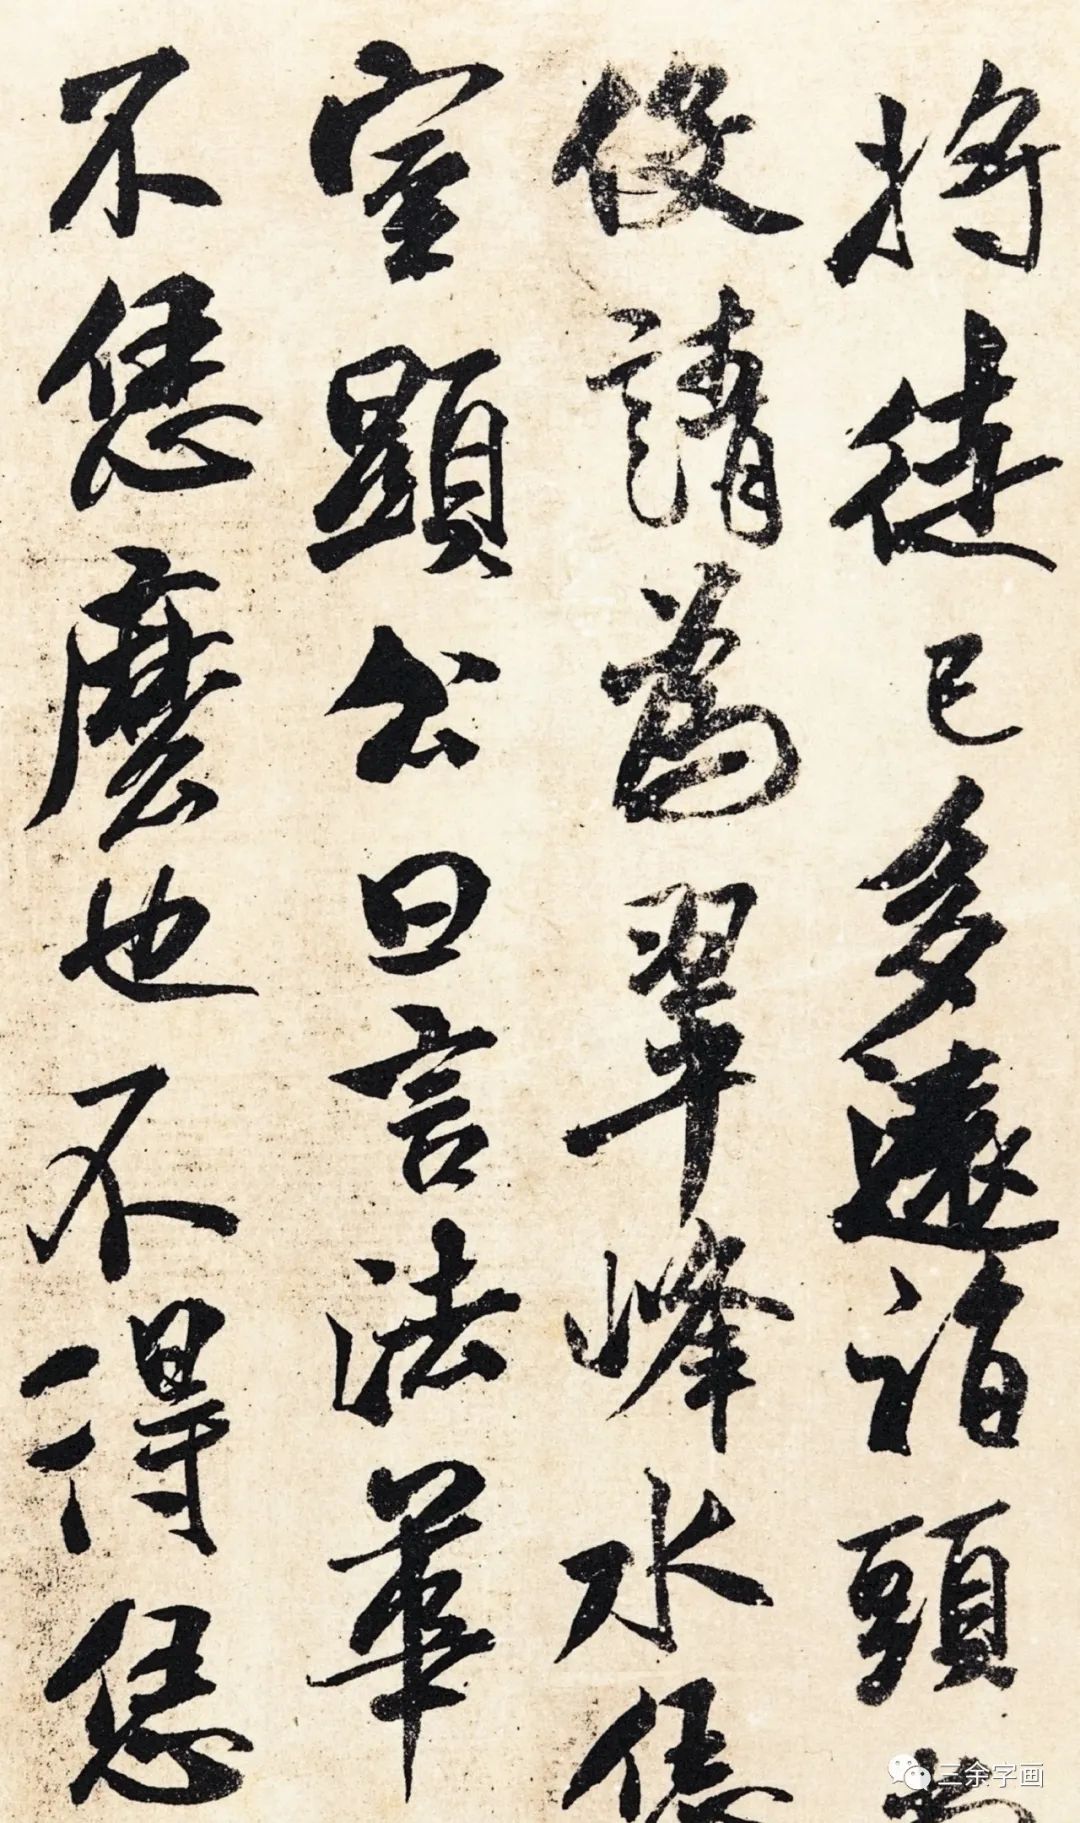 將徒已多遠詣頭
役請為翠峰水恁
室顯公曰言法華
不恁麼也不得恁
三余字画